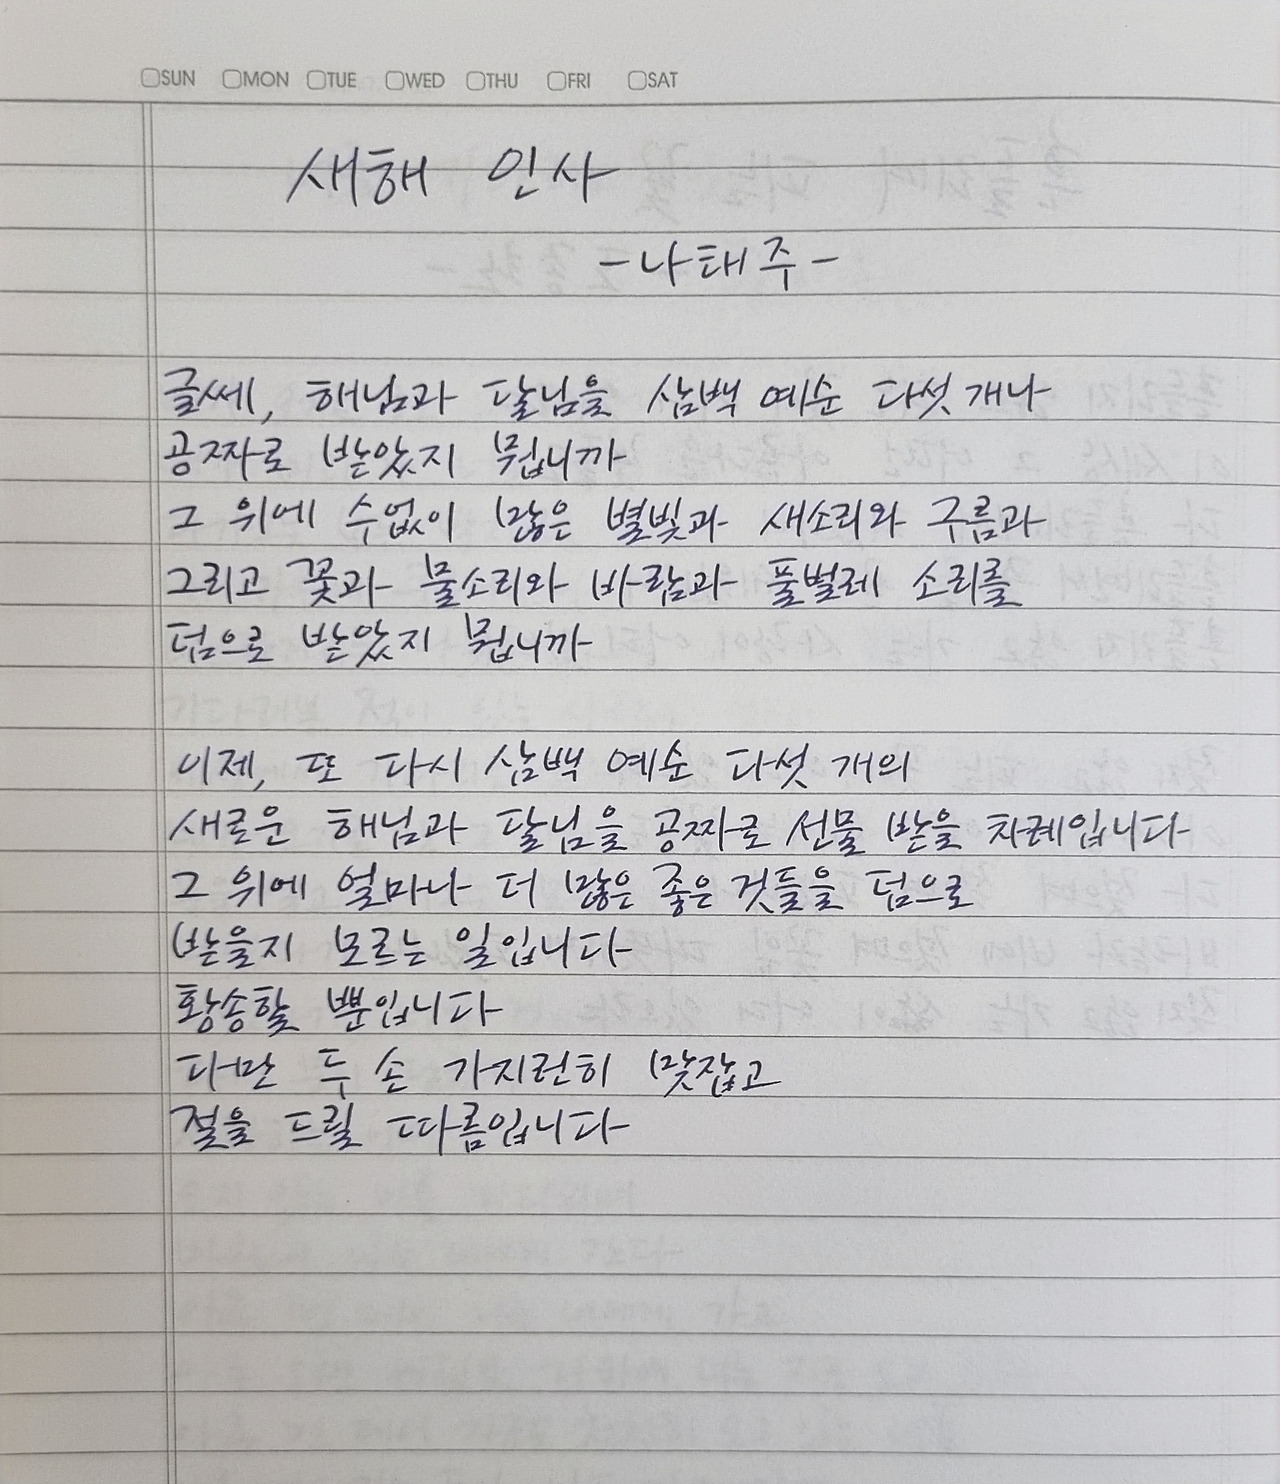 SUN MON TUE WED THU FRI SAT
새해 인사
-나태주-
글쎄, 해님과 달님을 삼백 예순 다섯 개나
공짜로 받았지 뭡니까
그 위에 수없이 많은 별빛과 새소리와 구름과
그리고 꽃과 물소리와 바람과 풀벌레 소리를
덤으로 받았지 뭡니까
이제, 또 다시 삼백 예순 다섯 개의
새로운 해님과 달님을 공짜로 선물 받을 차례입니다
그 위에 얼마나 더 많은 좋은 것들을 덤으로
받을지 모르는 일입니다
황송할 뿐입니다
다만 두 손 가지런히 맞잡고
절을 드릴 따름입니다